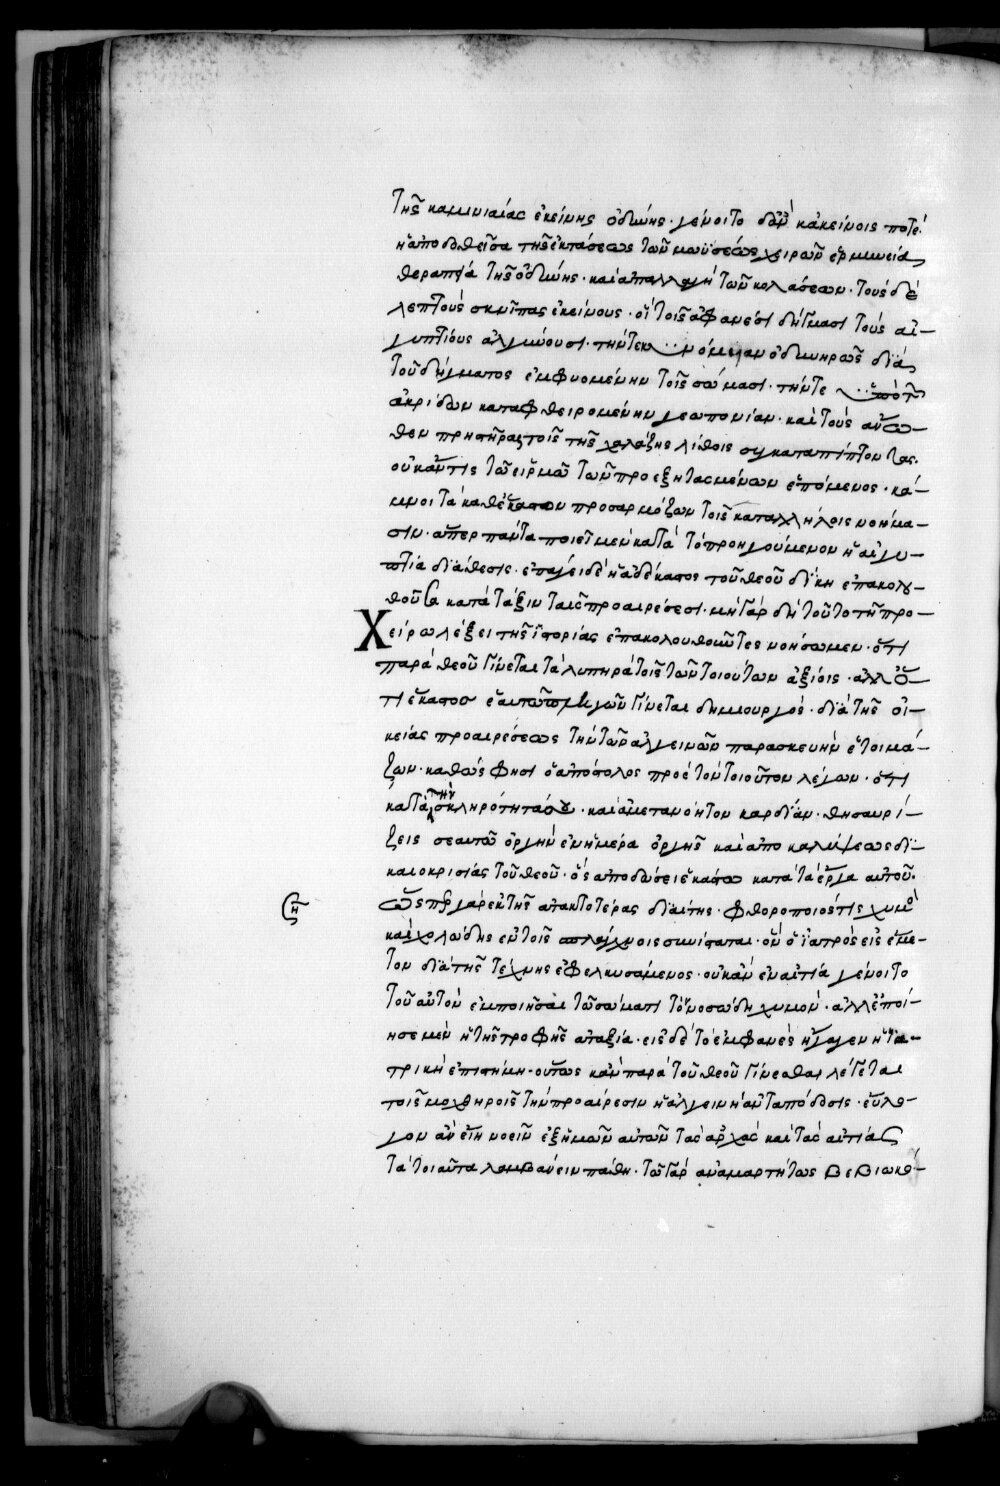 τῆς καμινιαίας ἐκείνης ὀδύνης · γένοιτο δἂν κἀκείνοις ποτέ
ἡ ἀποδοθεῖσα τῆς ἐκτάσεως τῶν μωϋσέως χειρῶν ἑρμηνεία
θεραπεία τῆς ὀδύνης · καὶ ἀπαλλαγὴ τῶν κολάσεων · τοὺς δὲ
λεπτοὺς σκνῖπας ἐκείνους · οἳ τοῖς ἀφανέσι δήγμασι τοὺς αἰ-
γυπτίους ἀλγύνουσι · τήν τε κυνόμυιαν ὀδυνηρῶς διὰ
τοῦ δήγματος ἐμφυομένην τοῖς σώμασι · τήν τε ὑπὸ τῶν
ἀκρίδων καταφθειρομένην γεωπονίαν · καὶ τοὺς ἄνω-
θεν πρηστῆρας τοῖς τῆς χαλάζης λίθοις συγκαταπίπτοντας ·
οὐκ ἄν τις τῷ εἱρμῷ τῶν προεξητασμένων ἑπόμενος · κά-
μνοι τὰ καθέκαστον προσαρμόζων τοῖς καταλλήλοις νοήμα-
σιν · ἅπερ πάντα ποιεῖ μὲν κατὰ τὸ προηγούμενον ἡ αἰγυ-
πτία διάθεσις · ἐπάγει δὲ ἡ ἀδέκαστος τοῦ θεοῦ δίκη ἐπακολου-
θοῦσα κατὰ τάξιν ταῖς προαιρέσεσι · μὴ γὰρ δὴ τοῦτο τῇ προ-
Χείρῳ λέξει τῆς ἱστορίας ἐπακολουθοῦντες νοήσωμεν · ὅτι
παρὰ θεοῦ γίνεται τὰ λυπηρὰ τοῖς τῶν τοιούτων ἀξίοις · ἀλλ ὅ-
τι ἕκαστος ἑαυτῷ τῶν πληγῶν γίνεται δημιουργός · διὰ τῆς οἰ-
κείας προαιρέσεως τὴν τῶν ἀλγεινῶν παρασκευὴν ἑτοιμά-
ζων · καθώς φησι ὁ ἀπόστολος πρὸς τὸν τοιοῦτον λέγων · ὅτι
κατὰ τὴν σκληρότητά σου · καὶ ἀμετανόητον καρδίαν · θησαυρί-
ζεις σεαυτῷ ὀργὴν ἐν ἡμέρᾳ ὀργῆς καὶ ἀποκαλύψεως δι-
καιοκρισίας τοῦ θεοῦ · ὃς ἀποδώσει ἑκάστῳ κατὰ τὰ ἔργα αὐτοῦ ·
ὥσπερ γὰρ ἐκ τῆς ἀτακτοτέρας διαίτης · φθοροποιός τις χυμὸς
καὶ χολώδης ἐν τοῖς σπλάγχνοις συνίσταται · ὃν ὁ ἰατρὸς εἰς ἔμε-
τον διὰ τῆς τέχνης ἐφελκυσάμενος · οὐκ ἂν ἐν αἰτίᾳ γένοιτο
τοῦ αὐτὸν ἐμποιῆσαι τῷ σώματι τὸν νοσώδη χυμόν · ἀλλ ἐποί-
ησε μὲν ἡ τῆς τροφῆς ἀταξία · εἰς δὲ τὸ ἐμφανὲς ἤγαγεν ἡ ἰα-
τρικὴ ἐπιστήμη · οὕτως κἂν παρὰ τοῦ θεοῦ γίνεσθαι λέγεται
τοῖς μοχθηροῖς τὴν προαίρεσιν ἡ ἀλγεινὴ ἀνταπόδοσις · εὔλο-
γον ἂν εἴη νοεῖν ἐξ ἡμῶν αὐτῶν τὰς ἀρχὰς καὶ τὰς αἰτίας
τὰ τοιαῦτα λαμβάνειν πάθη · τῷ γὰρ ἀναμαρτήτως βεβιωκό-